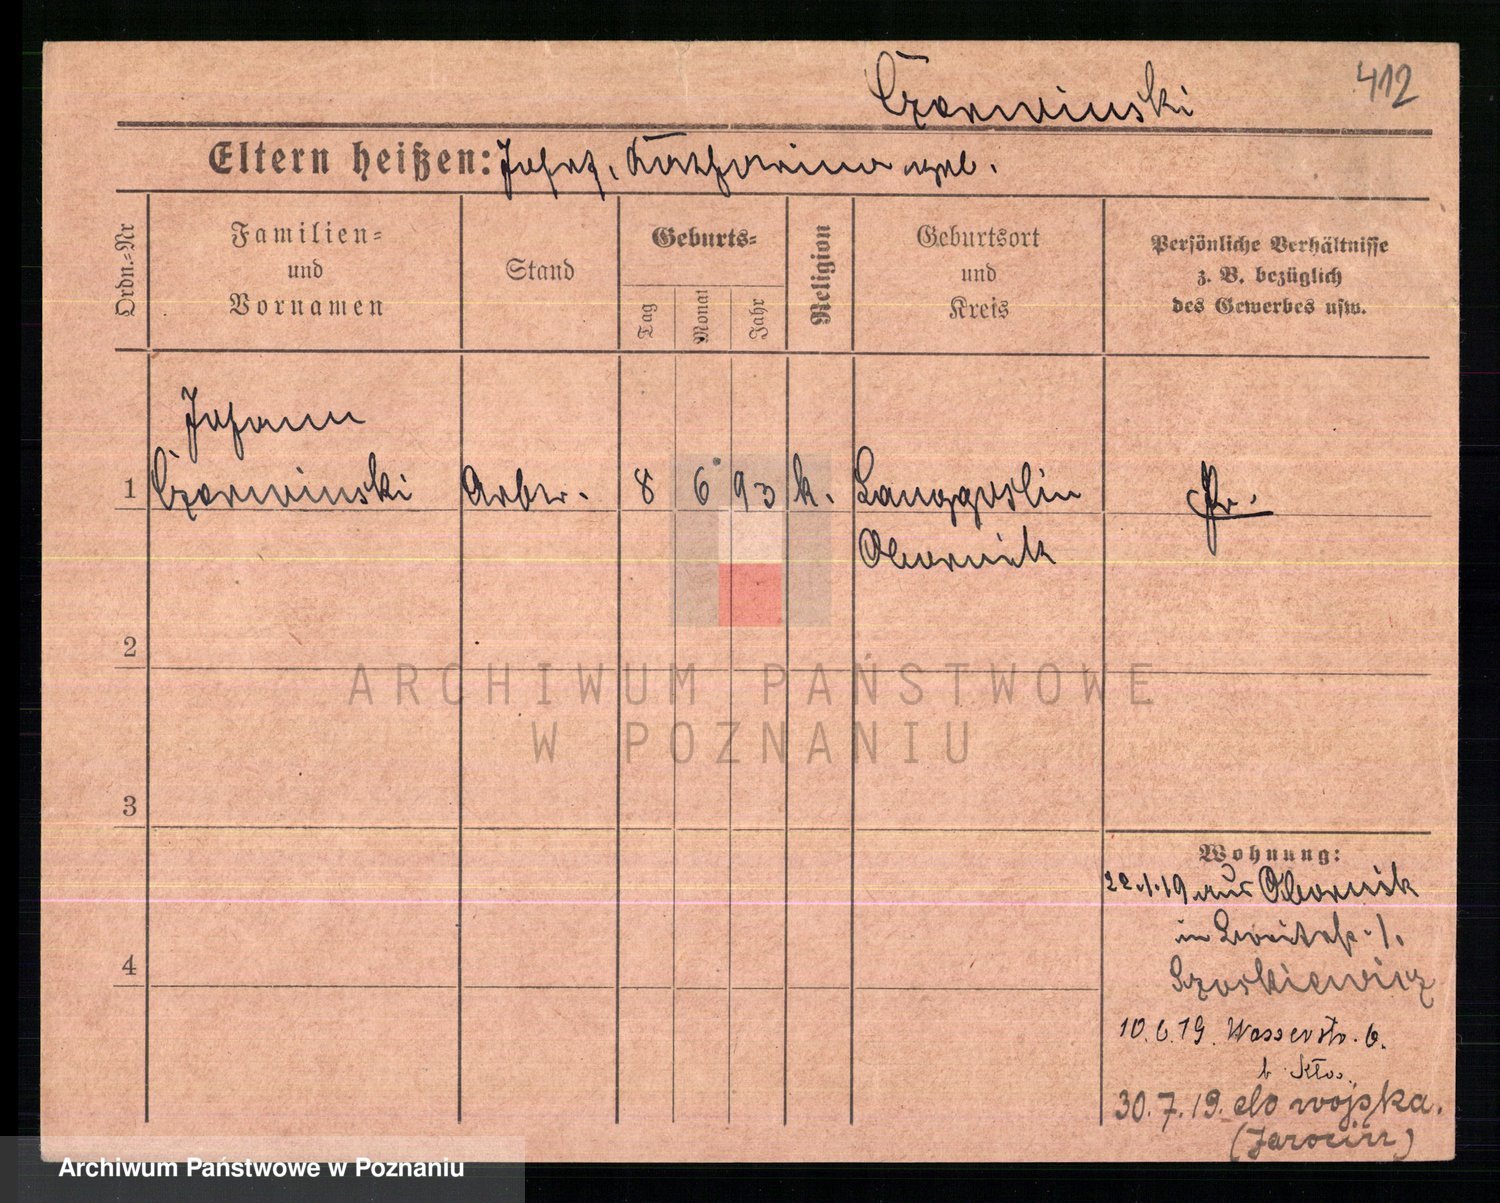 Czerwinski
412
Eltern heißen: Josef, Katharina geb.
Ordn.-Nr
Familien-
und
Vornamen
Stand
Geburts-
Tag
Monat
Jahr
Religion
Geburtsort
und
Kreis
Persönliche Verhältnisse
z. B. bezüglich
des Gewerbes usw.
Johann
1 Czerwinski Arbtr. 8 6 93 k. Langgoslin Pr.
Obornik
2
3
4
Wohnung:
22.1.19 aus Obornik
in Breitestr. 1.
10.6.19. Wasserstr. 6.
b. Kłos.
30.7.19. do wojska.
(Jarocin)
ARCHIWUM PAŃSTWOWE
W POZNANIU
Archiwum Państwowe w Poznaniu